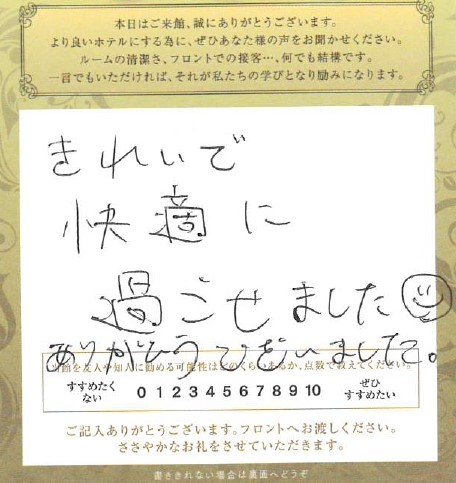 本日はご来館、誠にありがとうございます。
より良いホテルにする為に、ぜひあなた様の声をお聞かせください。
ルームの清潔さ、フロントでの接客…、何でも結構です。
一言でもいただければ、それが私たちの学びとなり励みになります。
きれいで
快適に
過ごせました
ありがとうございました。
当館を友人や知人に勧める可能性はどのくらいあるか、点数で教えてください。
すすめたくない 0 1 2 3 4 5 6 7 8 9 10 ぜひすすめたい
ご記入ありがとうございます。フロントへお渡しください。
ささやかなお礼をさせていただきます。
書ききれない場合は裏面へどうぞ